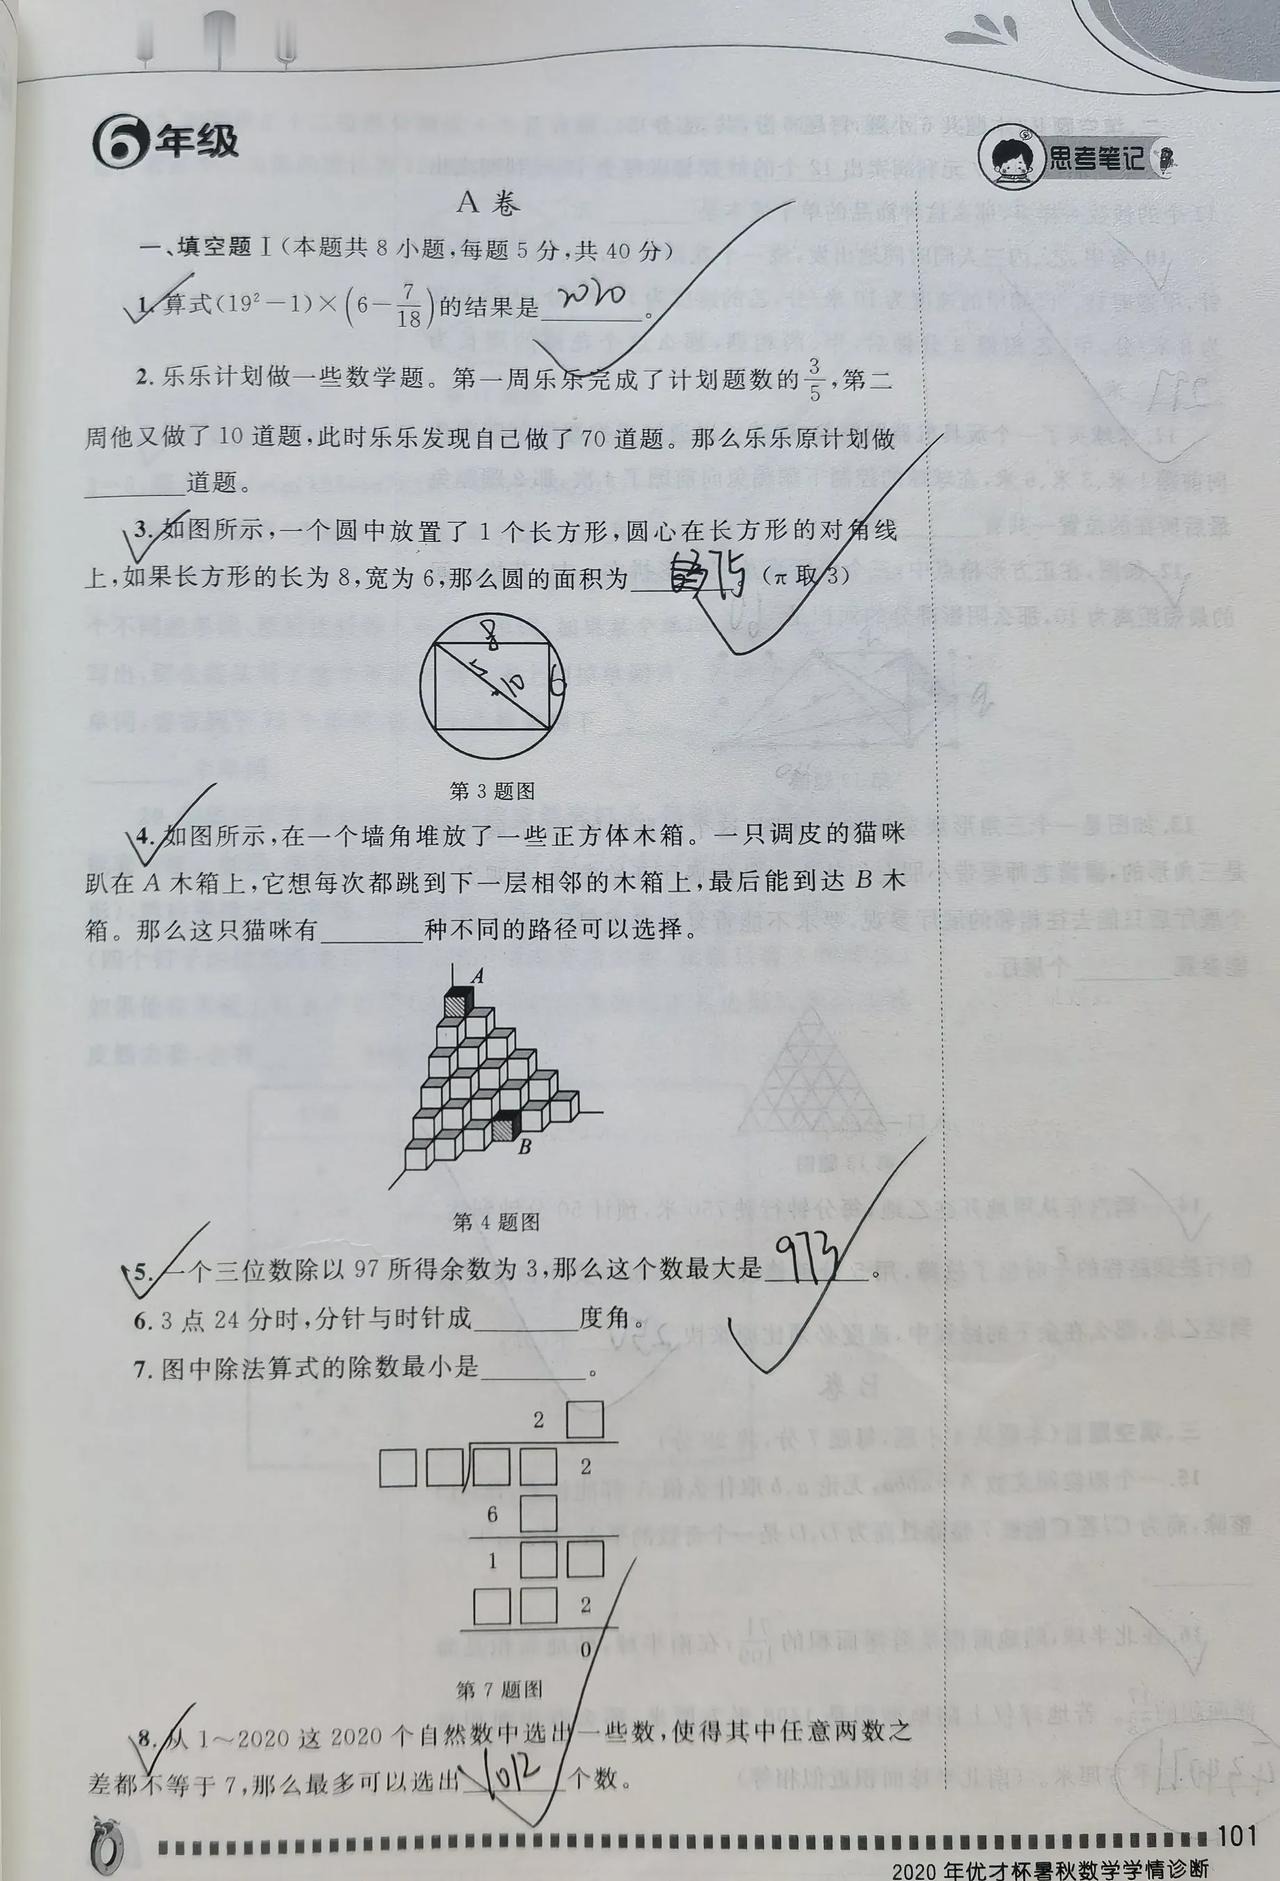 6年级
思考笔记
A 卷
一、填空题Ⅰ(本题共 8 小题,每题 5 分,共 40 分)
1. 算式(19²－1)×(6－7/18)的结果是 2020 。
2. 乐乐计划做一些数学题。第一周乐乐完成了计划题数的3/5,第二
周他又做了 10 道题,此时乐乐发现自己做了 70 道题。那么乐乐原计划做
______道题。
3. 如图所示,一个圆中放置了 1 个长方形,圆心在长方形的对角线
上,如果长方形的长为 8,宽为 6,那么圆的面积为 75 。(π 取 3)
8
5
10
6
第 3 题图
4. 如图所示,在一个墙角堆放了一些正方体木箱。一只调皮的猫咪
趴在 A 木箱上,它想每次都跳到下一层相邻的木箱上,最后能到达 B 木
箱。那么这只猫咪有______种不同的路径可以选择。
A
B
第 4 题图
5. 一个三位数除以 97 所得余数为 3,那么这个数最大是 973 。
6. 3 点 24 分时,分针与时针成______度角。
7. 图中除法算式的除数最小是______。
2 □
□ □ ) □ □ 2
6 □
1 □ □
□ □ 2
0
第 7 题图
8. 从 1～2020 这 2020 个自然数中选出一些数,使得其中任意两数之
差都不等于 7,那么最多可以选出 1012 个数。
101
2020 年优才杯暑秋数学学情诊断